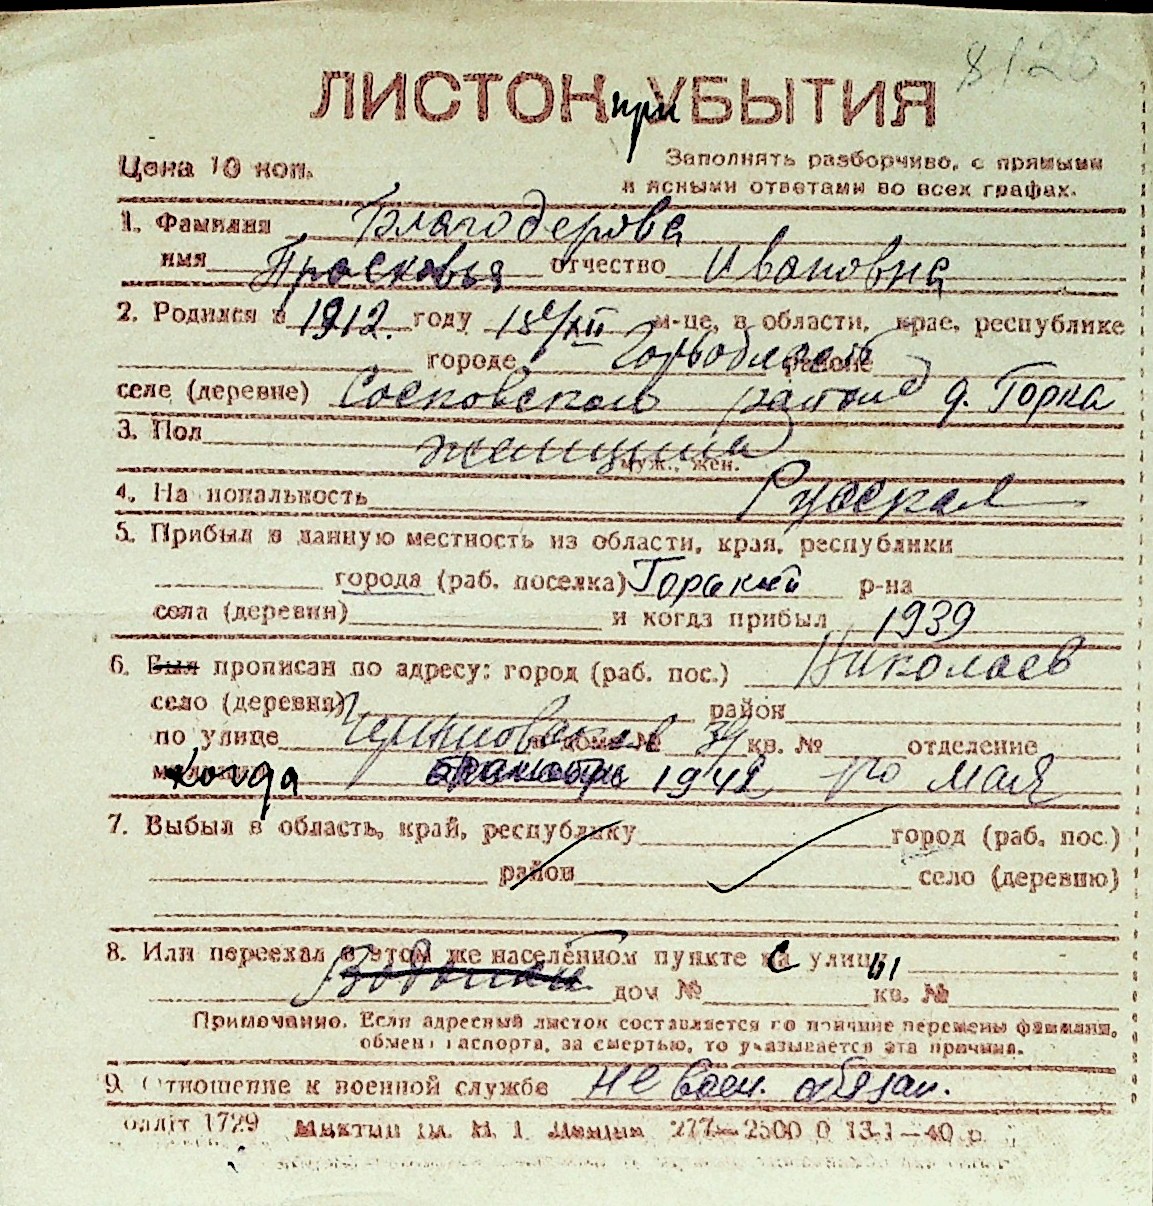 8126
ЛИСТОК при УБЫТИЯ
Цена 10 коп.
Заполнять разборчиво, с прямыми
и ясными ответами во всех графах.
1. Фамилия Благодерова
имя Просковья отчество Ивановна
2. Родился в 1912. году 15/XII м-це, в области, крае, республике
городе Горьк области районе
селе (деревне) Сосковском районе д. Горка
3. Пол женщина
муж., жен.
4. На иональность Русская
5. Прибыл в данную местность из области, края, республики
города (раб. поселка) Горький р-на
села (деревни) и когда прибыл 1939
6. Был прописан по адресу: город (раб. пос.) Николаев
село (деревня) район
по улице дом № 39 кв. № отделение
когда 1942 по мая
7. Выбыл в область, край, республику город (раб. пос.)
район село (деревню)
8. Или переехал в этом же населённом пункте с улицы
дом № кв. №
Примочание. Если адресный листок составляется по причине перемены фамилии,
обмен паспорта, за смертью, то указывается эта причина.
9. Отношение к военной службе не воен. обязан.
олліт 1729 277—2500 0 13-1—40 р.